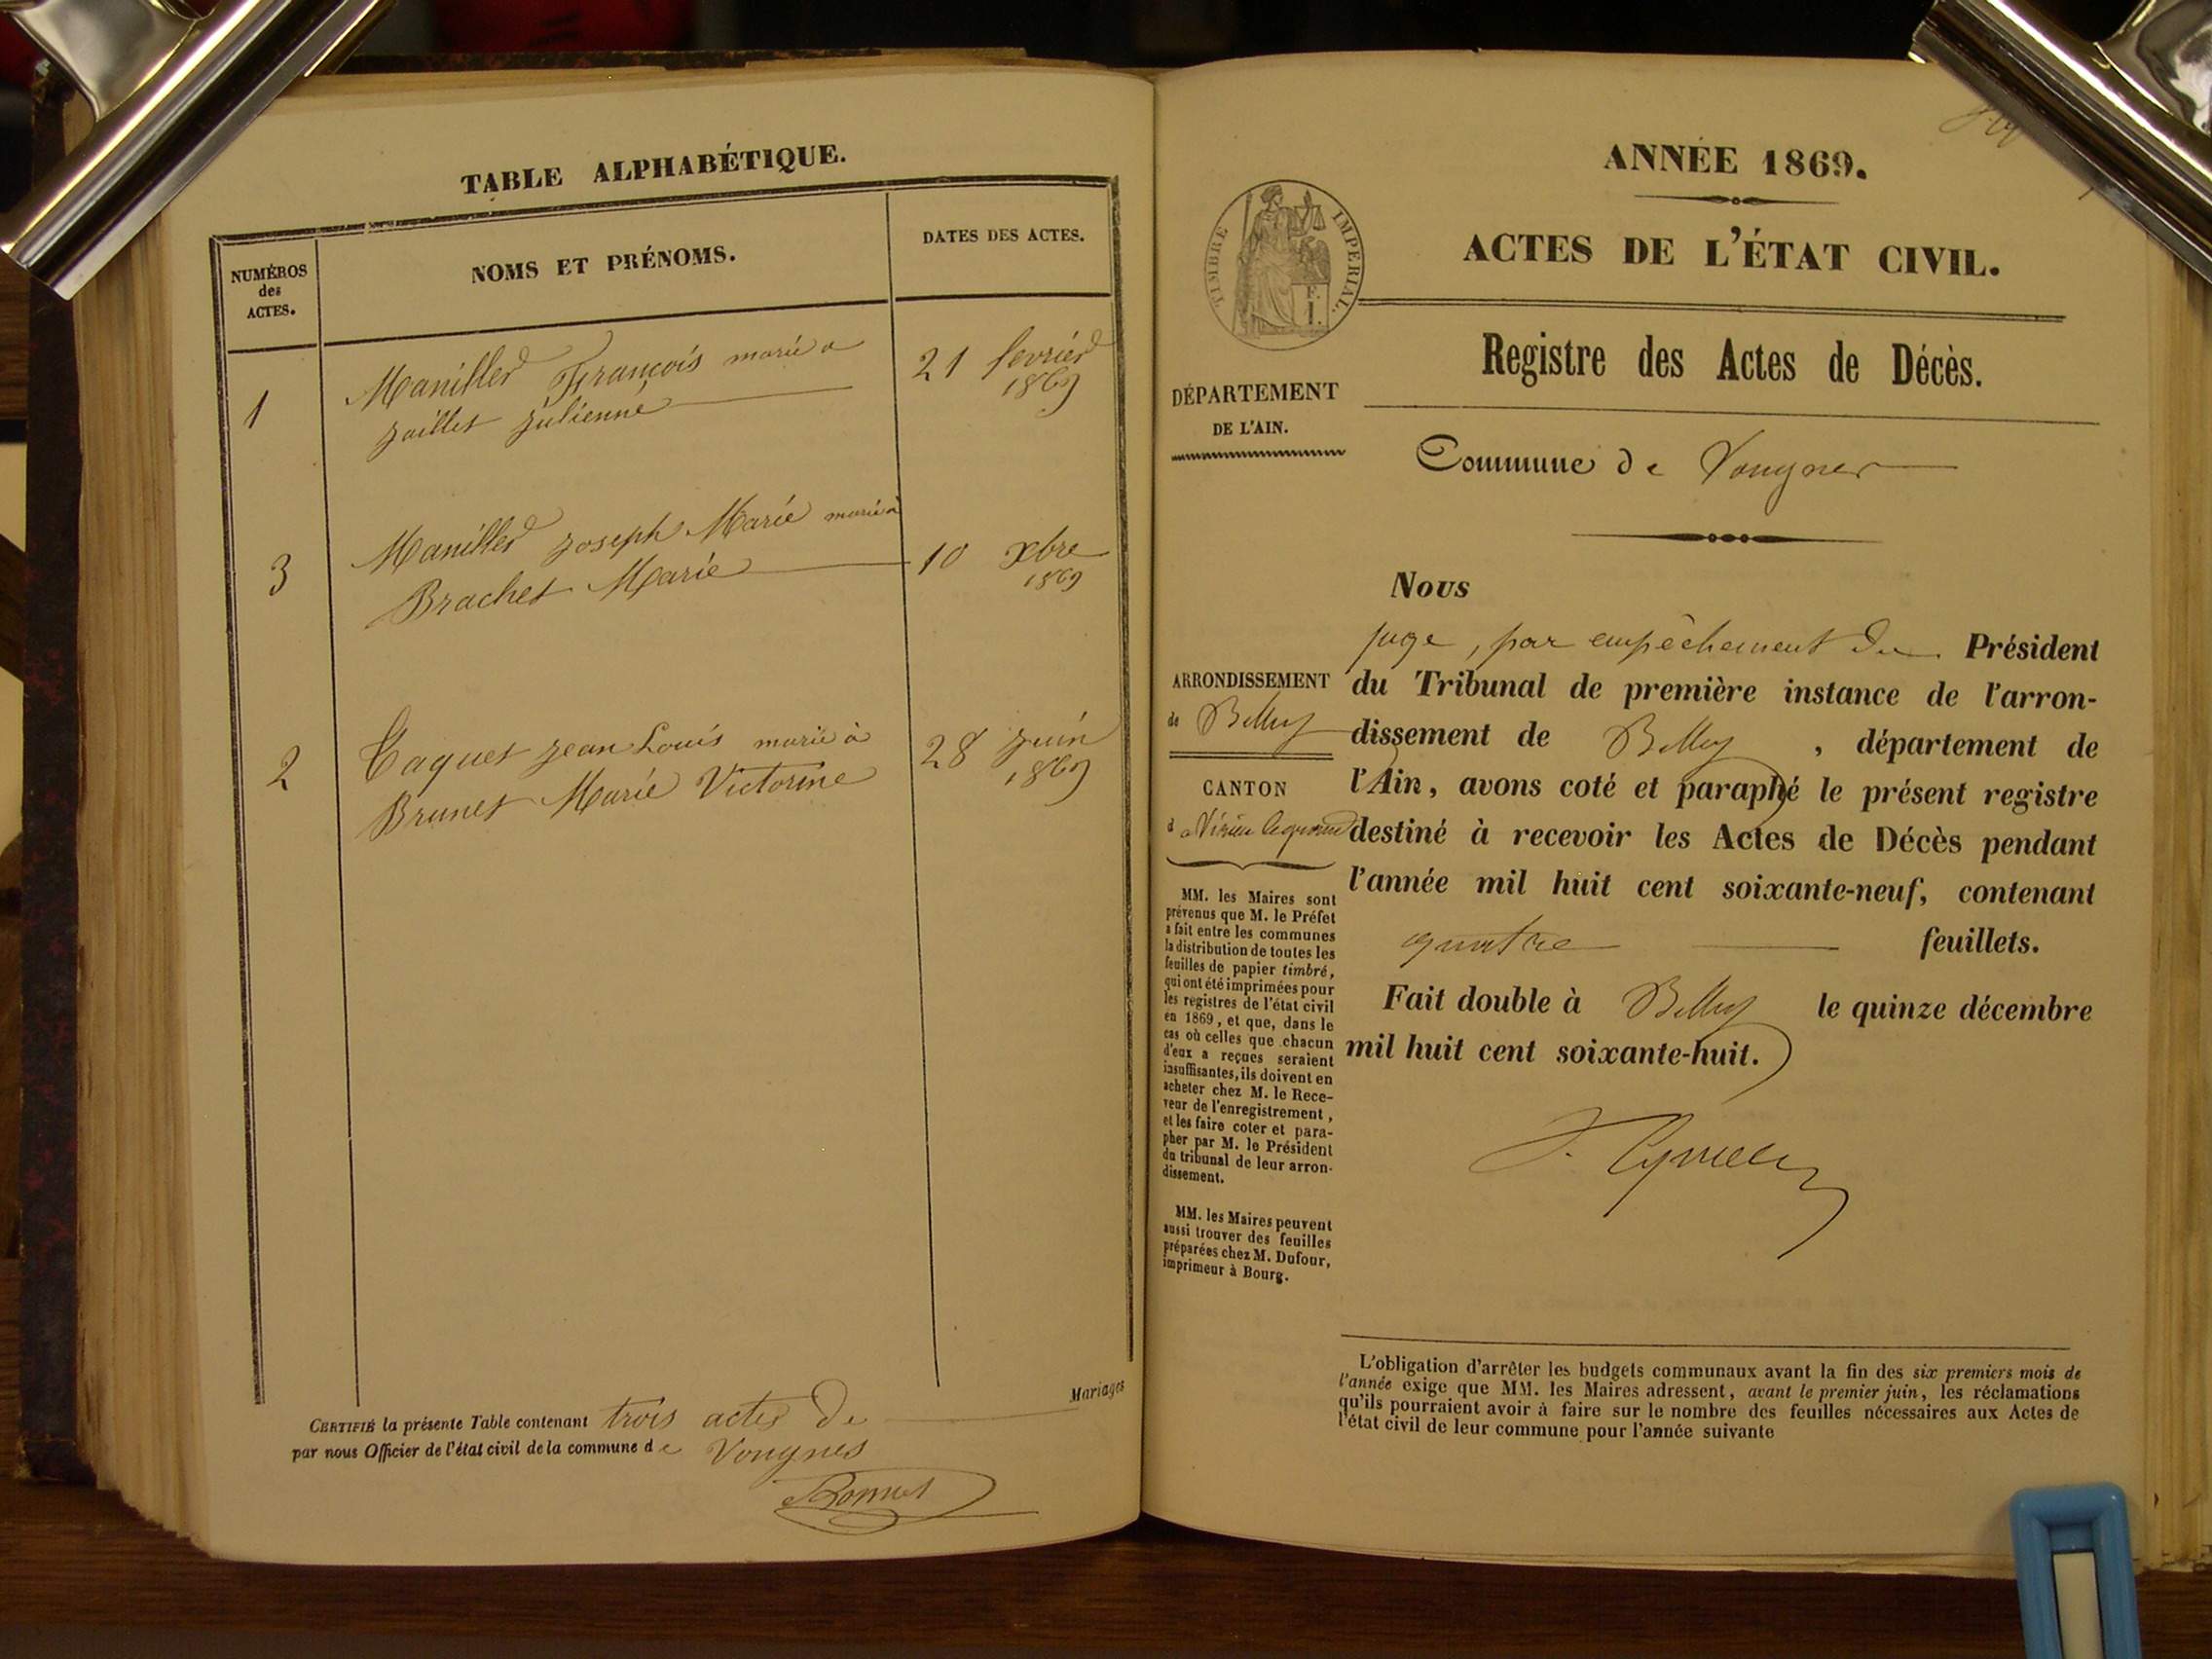 TABLE ALPHABÉTIQUE.
NUMÉROS
des
ACTES.
NOMS ET PRÉNOMS.
DATES DES ACTES.
1
Maniller François marié à
Jaillet Julienne
21 fevrier
1869
3
Maniller Joseph Marie marié à
Brachet Marie
10 xbre
1869
2
Taquet Jean Louis marié à
Brunet Marie Victorine
28 Juin
1869
Mariages
CERTIFIÉ la présente Table contenant trois actes de
par nous Officier de l'état civil de la commune de Vongnes
Bonnet
ANNÉE 1869.
ACTES DE L'ÉTAT CIVIL.
TIMBRE IMPERIAL.
Registre des Actes de Décès.
DÉPARTEMENT
DE L'AIN.
Commune de Vongnes
Nous
juge, par empêchement du Président
du Tribunal de première instance de l'arron-
dissement de Belley , département de
l'Ain, avons coté et paraphé le présent registre
destiné à recevoir les Actes de Décès pendant
l'année mil huit cent soixante-neuf, contenant
quatre feuillets.
Fait double à Belley le quinze décembre
mil huit cent soixante-huit.
ARRONDISSEMENT
de Belley
CANTON
de Virieu le grand
MM. les Maires sont
prévenus que M. le Préfet
a fait entre les communes
la distribution de toutes les
feuilles de papier timbré,
qui ont été imprimées pour
les registres de l'état civil
en 1869, et que, dans le
cas où celles que chacun
d'eux a reçues seraient
insuffisantes, ils doivent en
acheter chez M. le Rece-
veur de l'enregistrement,
et les faire coter et para-
pher par M. le Président
du tribunal de leur arron-
dissement.
MM. les Maires peuvent
aussi trouver des feuilles
préparées chez M. Dufour,
imprimeur à Bourg.
L'obligation d'arrêter les budgets communaux avant la fin des six premiers mois de
l'année exige que MM. les Maires adressent, avant le premier juin, les réclamations
qu'ils pourraient avoir à faire sur le nombre des feuilles nécessaires aux Actes de
l'état civil de leur commune pour l'année suivante